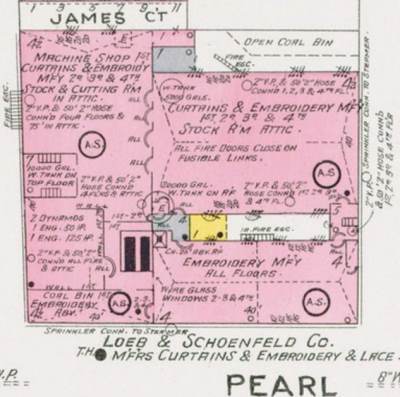 JAMES CT
1 3 5 7 9 11
OPEN COAL BIN
FIRE
ESC.
MACHINE SHOP 1ST
CURTAINS & EMBROIDY
MF'Y 2D 3D & 4TH
STOCK & CUTTING RM
IN ATTIC.
2" V.P. & 50' 2" HOSE
CONN'D FOUR FLOORS &
75' IN ATTIC.
FIRE ESC.
A.S.
W. TANK
5000 GALS.
2" V.P. & 50' 2" HOSE
CONN'D 1, 2, 3, & 4TH FL.
CURTAINS & EMBROIDERY MF'Y
1ST 2D 3D & 4TH
STOCK R'M ATTIC.
ALL FIRE DOORS CLOSE ON
FUSIBLE LINKS.
A.S.
SPRINKLER CONN. TO STEAMER
ALL
ALL
GAL.
W. TANK ON
TOP FLOOR
2" V.P. & 50' 2"
HOSE CONN'D
4 FLO'S & ATTIC
10000 GAL.
W. TANK ON R'F
2" V.P. & 50' 2" HOSE
CONN'D 1ST 2D 3D
& 4TH FL.
2 DYNAMOS
1 ENG. 50 H.P.
1 ENG. 125 H.P.
2" V.P. & 50' 2" HOSE
CONN'D ALL FLRS
& ATTIC
FIRE ESC.
EMBROIDERY MF'Y
ALL FLOORS.
WIRE GLASS
WINDOWS 2-3 & 4TH
A.S.
COAL BIN 1ST
EMBROIDERY
ABV.
A.S.
SPRINKLER CONN. TO STEAMER
LOEB & SCHOENFELD CO.
T.H. MFRS CURTAINS & EMBROIDERY & LACE
PEARL